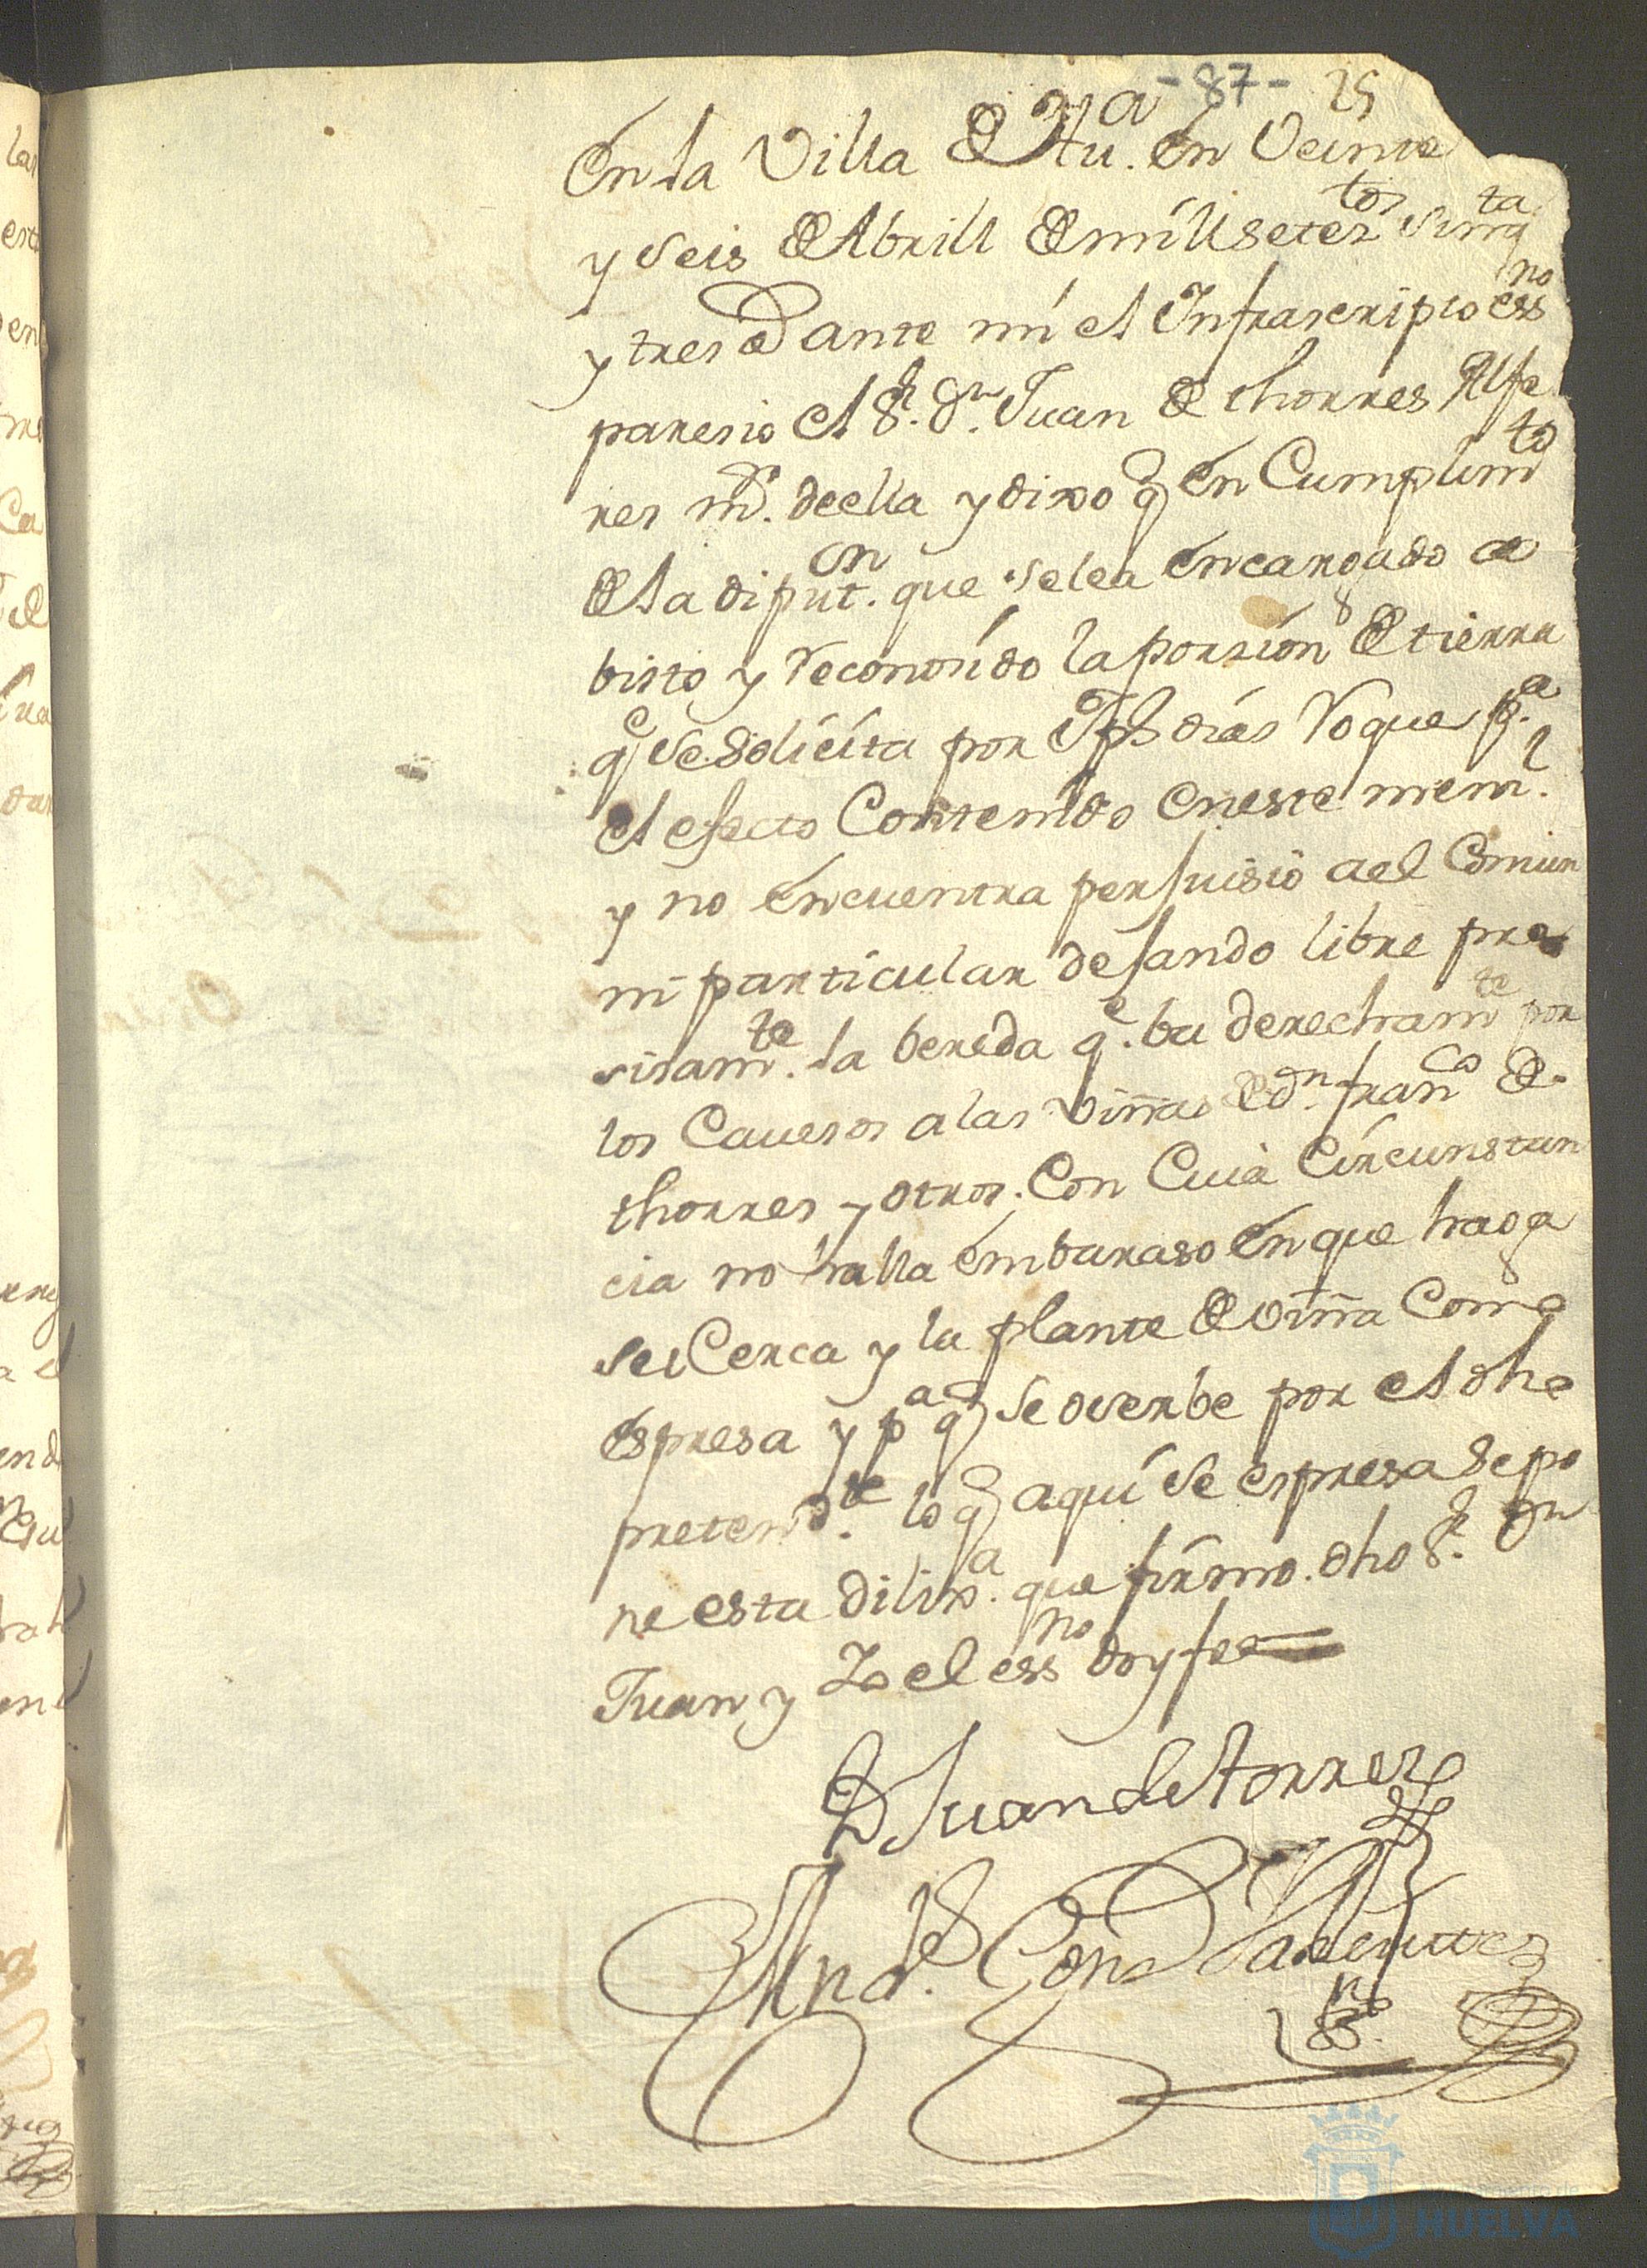 -87- 25
En la Villa de Hu.a en Veinte
y seis de Abrill de mill setez.tos sinq.ta
y tres a.s ante mi el Infrascripto ess.no
paresio el S.r D.n Juan de thorres Alfe
res m.r de ella y dixo q en Cumplim.to
de la diput.on que se le a encargado a
bisto y reconosido la porsion de tierra
q.e se solicita por Jph dias Roque p.a
el efecto Contenido en este mem.l
y no encuentra perjuisio a el Comun
ni particular dejando libre pre
sisam.te la bereda q.e ba derecham.te por
los Cavesos a las viñas de d.n fran.co de
thorres y otros. Con Cuia Circunstan
cia no halla embaraso en que haga
se Cerca y la plante de viña Como
espresa y p.a q se overbe por el dho
pretend.te lo q aqui se espresa se po
ne esta dilix.a que firmo dho S.r D.n
Juan y Yo el ess.no doy fee
D Juan de torres
And.s Con